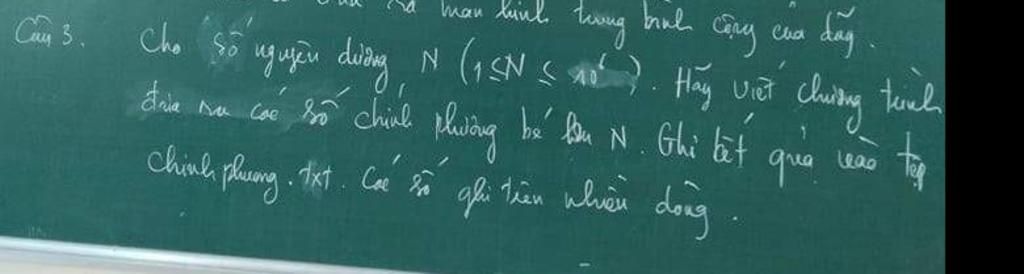 ra màn hình trung bình cộng của dãy.
Câu 3. Cho số nguyên dương N (1 ≤ N ≤ ). Hãy viết chương trình
đưa ra các số chính phương bé hơn N. Ghi kết quả vào tệp
chinhphuong.txt. Các số ghi trên nhiều dòng.